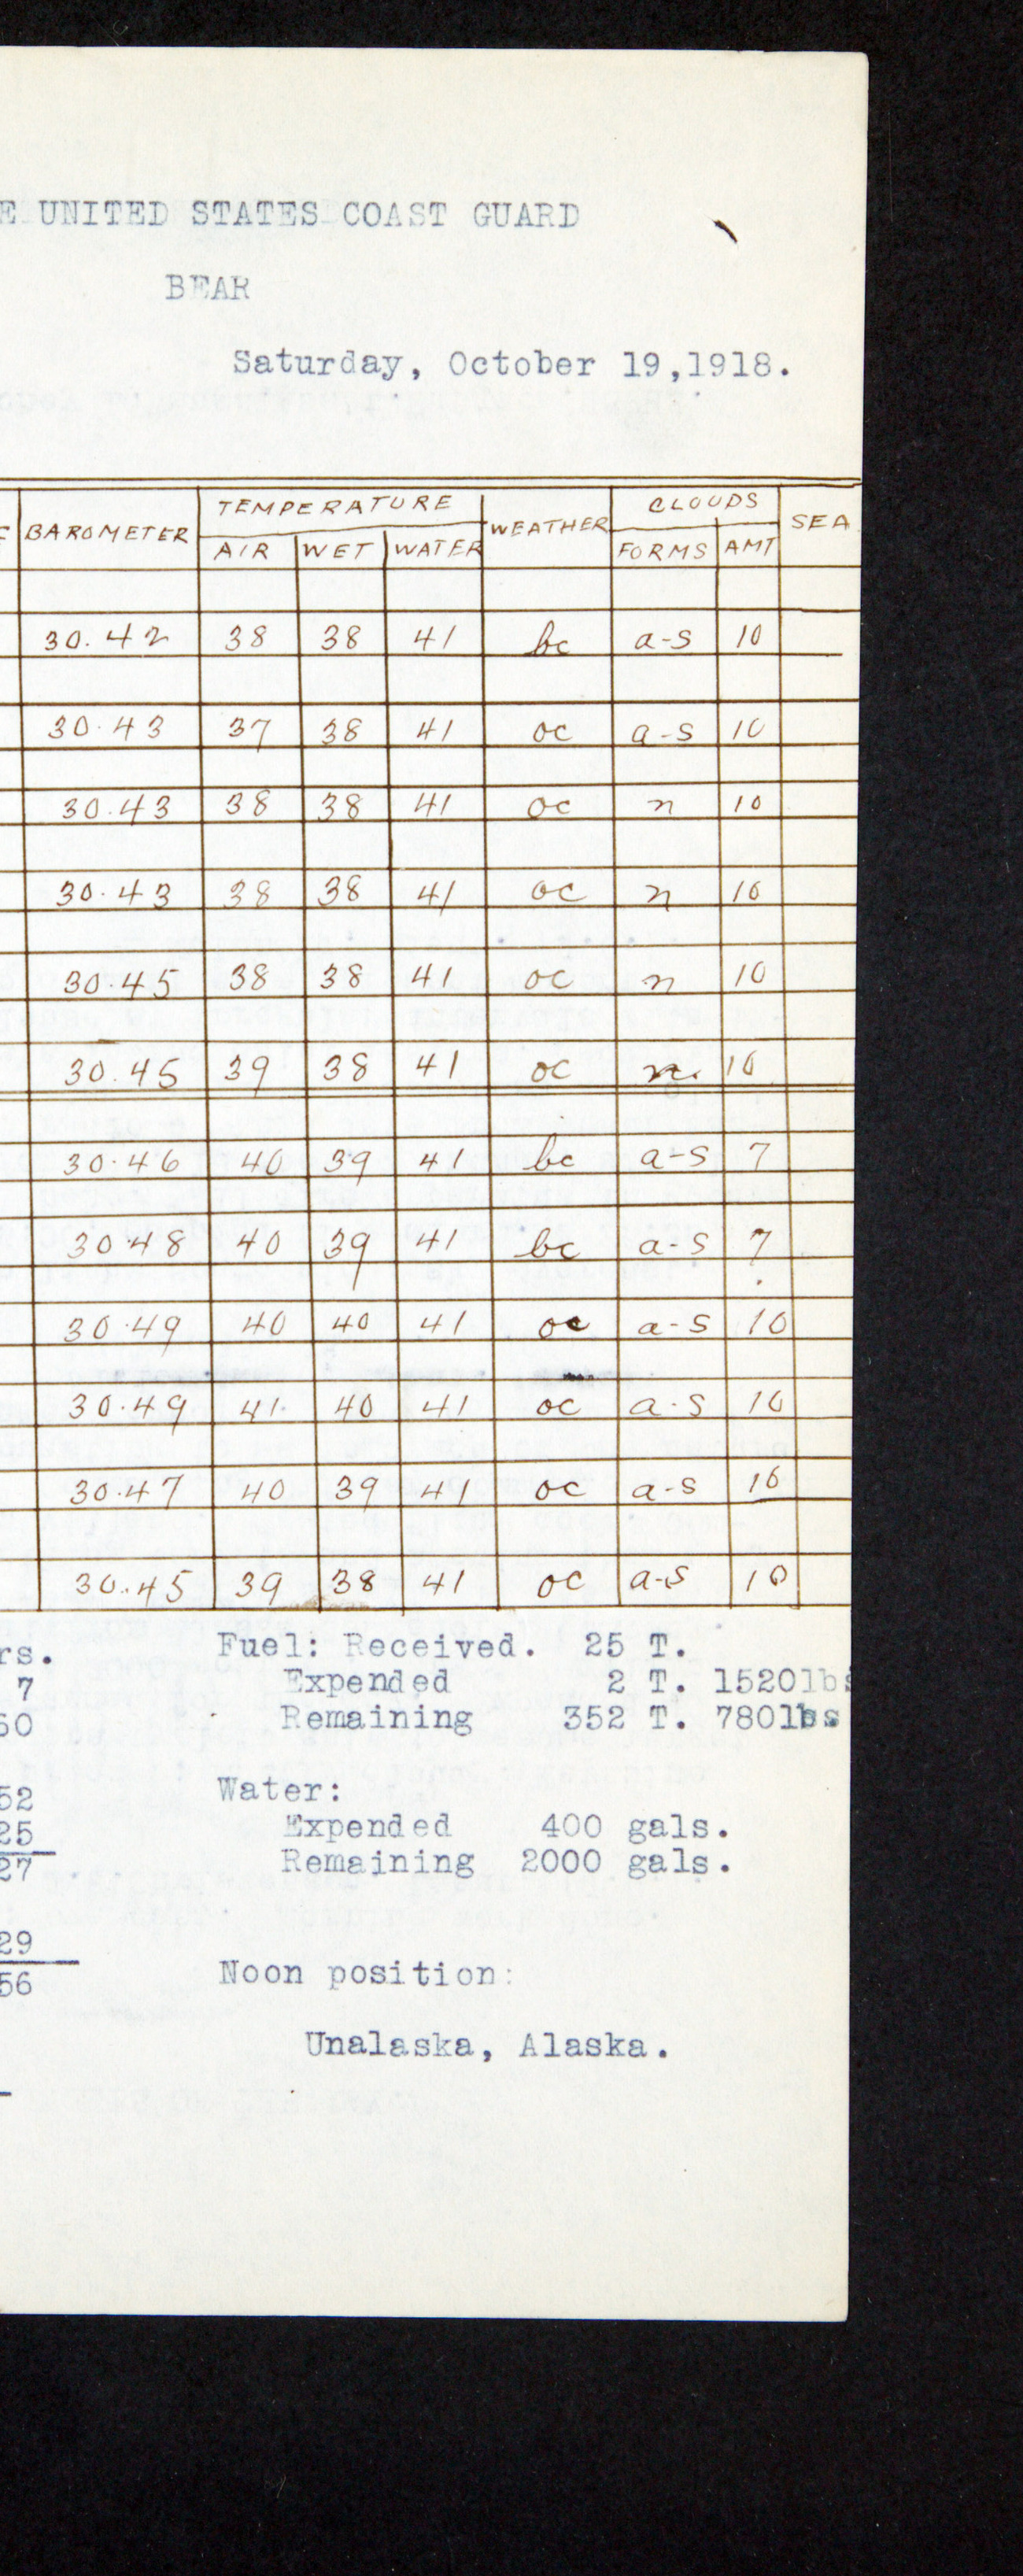 E UNITED STATES COAST GUARD
BEAR
Saturday, October 19,1918.
BAROMETER TEMPERATURE WEATHER CLOUDS SEA
AIR WET WATER FORMS AMT
30.42 38 38 41 bc a-s 10
30.43 37 38 41 oc a-s 10
30.43 38 38 41 oc n 10
30.43 38 38 41 oc n 10
30.45 38 38 41 oc n 10
30.45 39 38 41 oc n. 10
30.46 40 39 41 bc a-s 7
30.48 40 39 41 bc a-s 7
30.49 40 40 41 oc a-s 10
30.49 41 40 41 oc a-s 10
30.47 40 39 41 oc a-s 10
30.45 39 38 41 oc a-s 10
rs. Fuel: Received. 25 T.
7 Expended 2 T. 1520lbs
50 Remaining 352 T. 780lbs
52 Water:
25 Expended 400 gals.
27 Remaining 2000 gals.
29
56 Noon position:
Unalaska, Alaska.